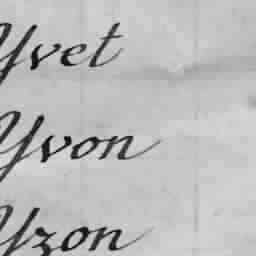 Yvet
Yvon
Yzon